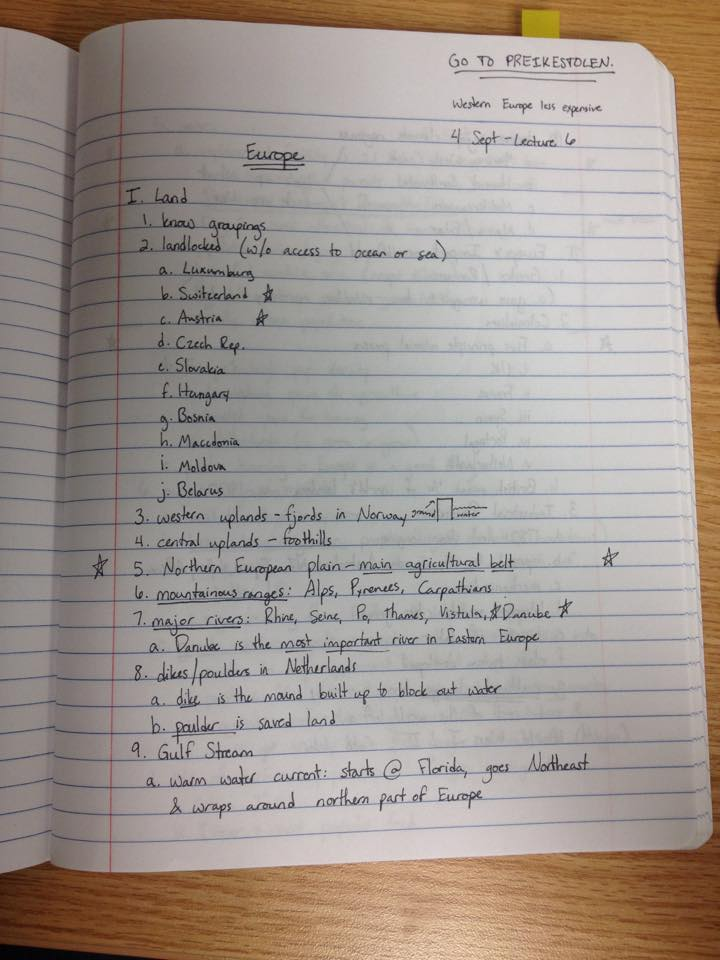 GO TO PREIKESTOLEN.
Western Europe less expensive
4 Sept - Lecture 6
Europe
I. Land
1. know groupings
2. landlocked (w/o access to ocean or sea)
a. Luxumburg
b. Switzerland ☆
c. Austria ☆
d. Czech Rep.
e. Slovakia
f. Hungary
g. Bosnia
h. Macedonia
i. Moldova
j. Belarus
3. western uplands - fjords in Norway ground water
4. central uplands - foothills
☆ 5. Northern European plain - main agricultural belt ☆
6. mountainous ranges: Alps, Pyrenees, Carpathians
7. major rivers: Rhine, Seine, Po, Thames, Vistula, ☆ Danube ☆
a. Danube is the most important river in Eastern Europe
8. dikes/poulders in Netherlands
a. dike is the mound built up to block out water
b. poulder is saved land
9. Gulf Stream
a. warm water current: starts @ Florida, goes Northeast
& wraps around northern part of Europe